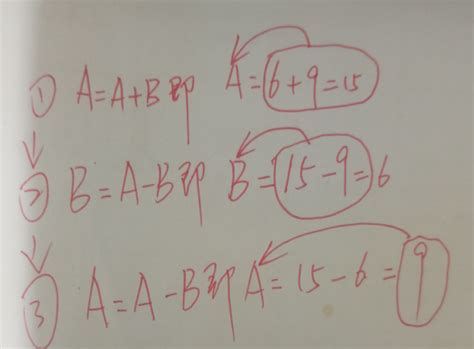 ① A=A+B即 A=6+9=15
② B=A-B即 B=15-9=6
③ A=A-B即A=15-6=9